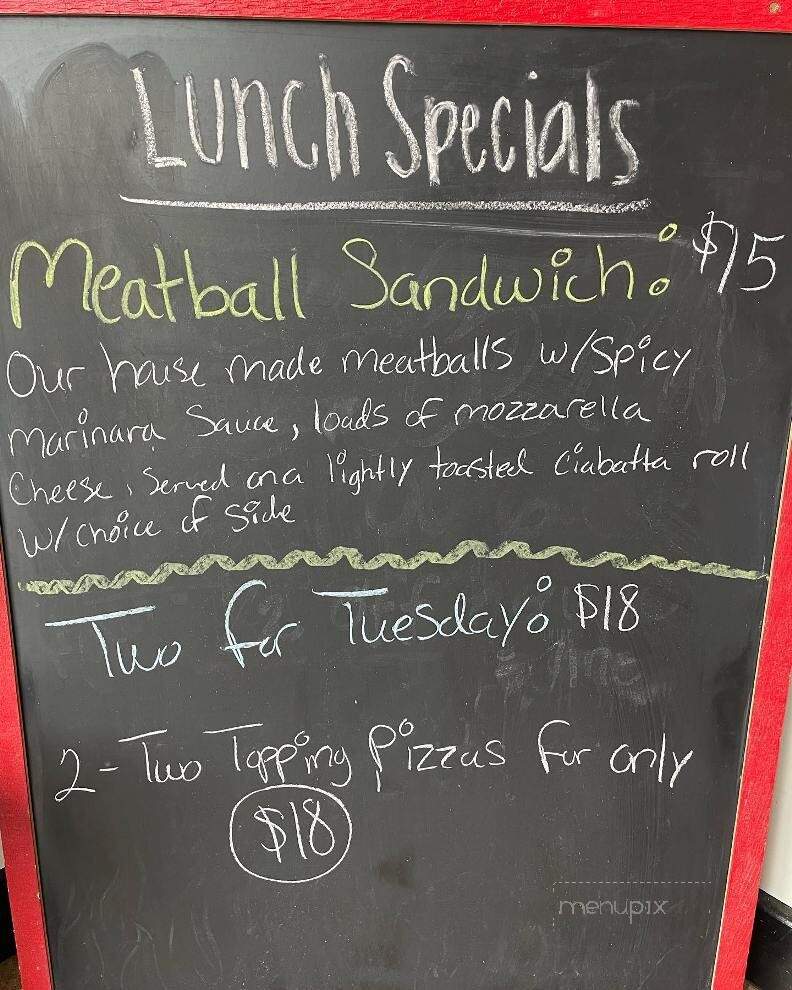 Lunch Specials
Meatball Sandwich: $15
Our house made meatballs w/Spicy
Marinara Sauce, loads of mozzarella
Cheese, Served on a lightly toasted Ciabatta roll
w/ choice of Side
Two for Tuesday: $18
2-Two Topping Pizzas for only
$18
menupix